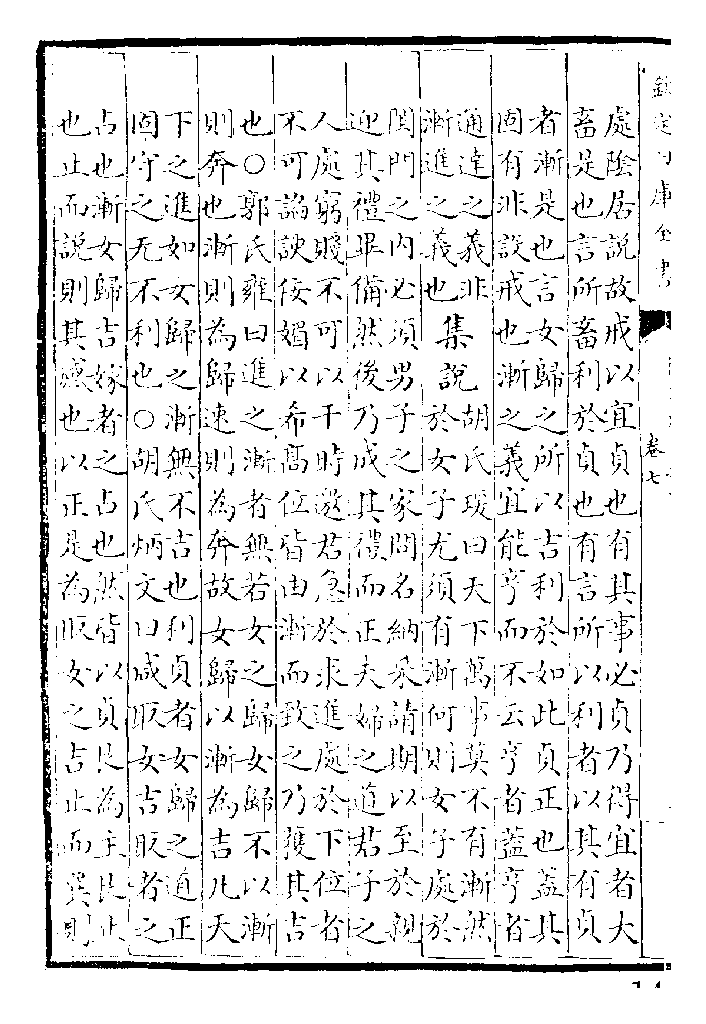 欽定四庫全書
卷七
處陰居説故戒以宜貞也有其事必貞乃得宜者大
畜是也言所畜利於貞也有言所以利者以其有貞
者漸是也言女歸之所以吉利於如此貞正也蓋其
固有非設戒也漸之義宜能亨而不云亨者蓋亨者
通達之義非
漸進之義也
集説
胡氏瑗曰天下萬事莫不有漸然
於女子尤須有漸何則女子處於
閨門之内必須男子之家問名納采請期以至於親
迎其禮畢備然後乃成其禮而正夫婦之道君子之
人處窮賤不可以干時邀君急於求進處於下位者
不可諂諛佞媚以希高位皆由漸而致之乃獲其吉
也○郭氏雍曰進之漸者無若女之歸女歸不以漸
則奔也漸則為歸速則為奔故女歸以漸為吉凡天
下之進如女歸之漸無不吉也利貞者女歸之道正
固守之无不利也○胡氏炳文曰咸取女吉取者之
占也漸女歸吉嫁者之占也然皆以貞艮為主艮止
也止而説則其感也以正是為取女之吉止而巽則